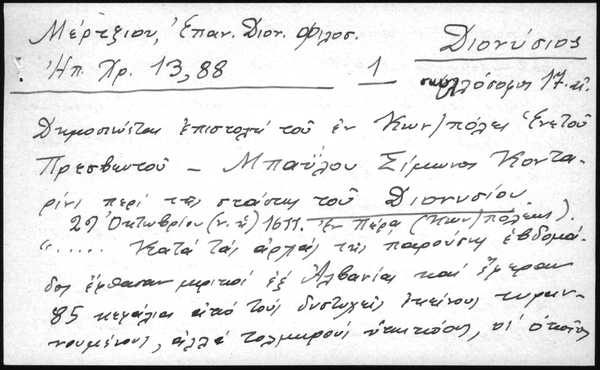 Μέρτζιου, Ἐπαν. Διον. Φιλοσ.
Διονύσιος
Ἠπ. Χρ. 13, 88
1
σκυλλόσοφος 17. αἰ.
Δημοσιεύεται ἐπιστολή τοῦ ἐν Κων/πόλει Ἑνετοῦ
Πρεσβευτοῦ – Μπαΰλου Σίμωνος Κοντα-
ρίνι περί τῆς στάσεως τοῦ Διονυσίου
29 Ὀκτωβρίου (ν. ἡ) 1611. Ἐν Πέρᾳ (Κων/πόλεως).
"..... Κατά τάς ἀρχάς τῆς παρούσης ἑβδομά-
δος ἔφθασαν μερικοί ἐξ Ἀλβανίας καί ἔφεραν
85 κεφάλια ἀπό τούς δυστυχεῖς ἐκείνους τυραν-
νουμένους, ἀλλά τολμηρούς, οἱ ὁποῖοι